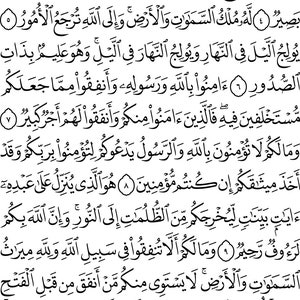 بَصِيرٌ ٤ لَّهُۥ مُلْكُ ٱلسَّمَٰوَٰتِ وَٱلْأَرْضِ ۚ وَإِلَى ٱللَّهِ تُرْجَعُ ٱلْأُمُورُ ٥
يُولِجُ ٱلَّيْلَ فِى ٱلنَّهَارِ وَيُولِجُ ٱلنَّهَارَ فِى ٱلَّيْلِ ۚ وَهُوَ عَلِيمٌۢ بِذَاتِ
ٱلصُّدُورِ ٦ ءَامِنُوا۟ بِٱللَّهِ وَرَسُولِهِۦ وَأَنفِقُوا۟ مِمَّا جَعَلَكُم
مُّسْتَخْلَفِينَ فِيهِ ۖ فَٱلَّذِينَ ءَامَنُوا۟ مِنكُمْ وَأَنفَقُوا۟ لَهُمْ أَجْرٌ كَبِيرٌ ٧
وَمَا لَكُمْ لَا تُؤْمِنُونَ بِٱللَّهِ ۙ وَٱلرَّسُولُ يَدْعُوكُمْ لِتُؤْمِنُوا۟ بِرَبِّكُمْ وَقَدْ
أَخَذَ مِيثَٰقَكُمْ إِن كُنتُم مُّؤْمِنِينَ ٨ هُوَ ٱلَّذِى يُنَزِّلُ عَلَىٰ عَبْدِهِۦٓ
ءَايَٰتٍۭ بَيِّنَٰتٍ لِّيُخْرِجَكُم مِّنَ ٱلظُّلُمَٰتِ إِلَى ٱلنُّورِ ۚ وَإِنَّ ٱللَّهَ بِكُمْ
لَرَءُوفٌ رَّحِيمٌ ٩ وَمَا لَكُمْ أَلَّا تُنفِقُوا۟ فِى سَبِيلِ ٱللَّهِ وَلِلَّهِ مِيرَٰثُ
ٱلسَّمَٰوَٰتِ وَٱلْأَرْضِ ۚ لَا يَسْتَوِى مِنكُم مَّنْ أَنفَقَ مِن قَبْلِ ٱلْفَتْحِ